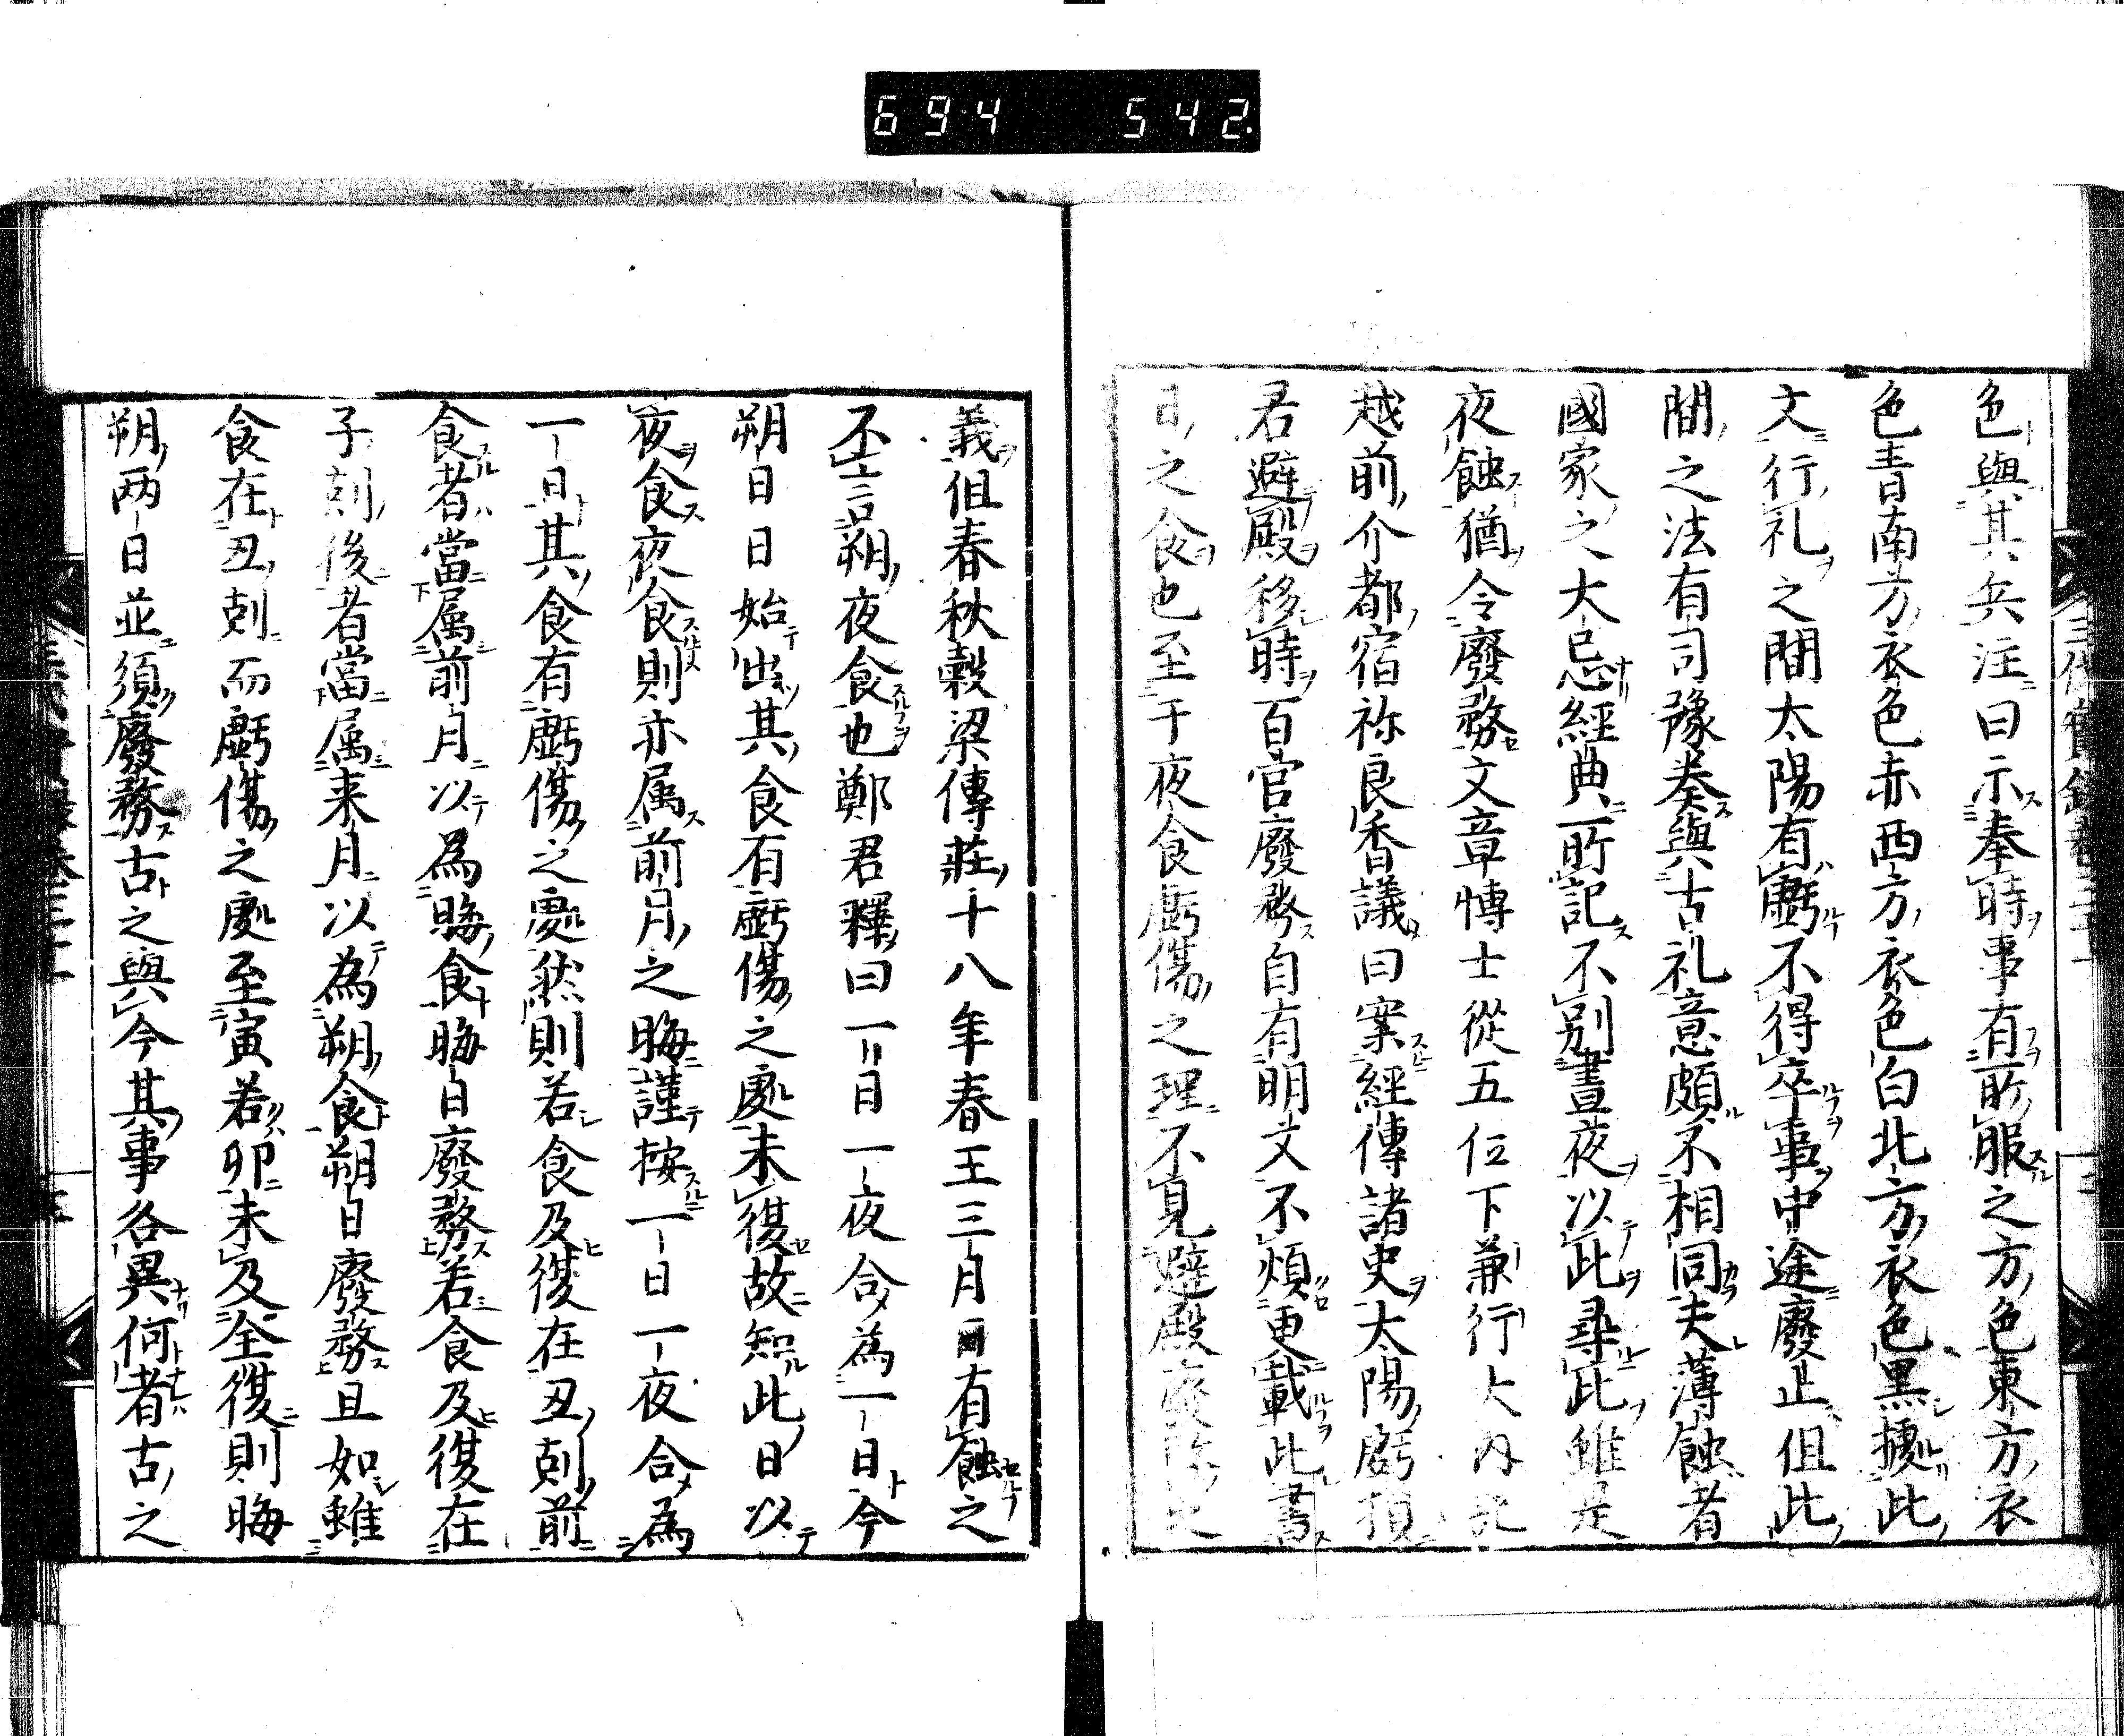 694 542.
色與其兵注曰示奉時事有所服之方色東方衣
色青南方衣色赤西方衣色白北方衣色黒據此
文行礼之間太陽有虧不得卒事中途廢止伹此
間之法有司豫奏與古礼意頗不相同夫薄蝕者
國家之大忌經典所記不別晝夜以此尋此雖是
夜蝕猶令廢務文章愽士從五位下兼行大内記
越前介都宿祢良香議曰案經傳諸史太陽虧損
君避殿移時百官廢務自有明文不煩更載此書
日之食也至于夜食虧傷之理不見避殿廢務之
義伹春秋穀梁傳莊十八年春王三月日有蝕之
不言朔夜食也鄭君釋曰一日一夜合為一日今
朔日日始出其食有虧傷之處未復故知此日以
夜食夜食則亦属前月之晦謹按一日一夜合為
一日其食有虧傷之處然則若食及復在丑剋前
食者當属前月以為晦食晦日廢務若食及復在
子剋後者當属来月以為朔食朔日廢務且如雖
食在丑剋而虧傷之處至寅若卯未及全復則晦
朔両日並須廢務古之與今其事各異何者古之